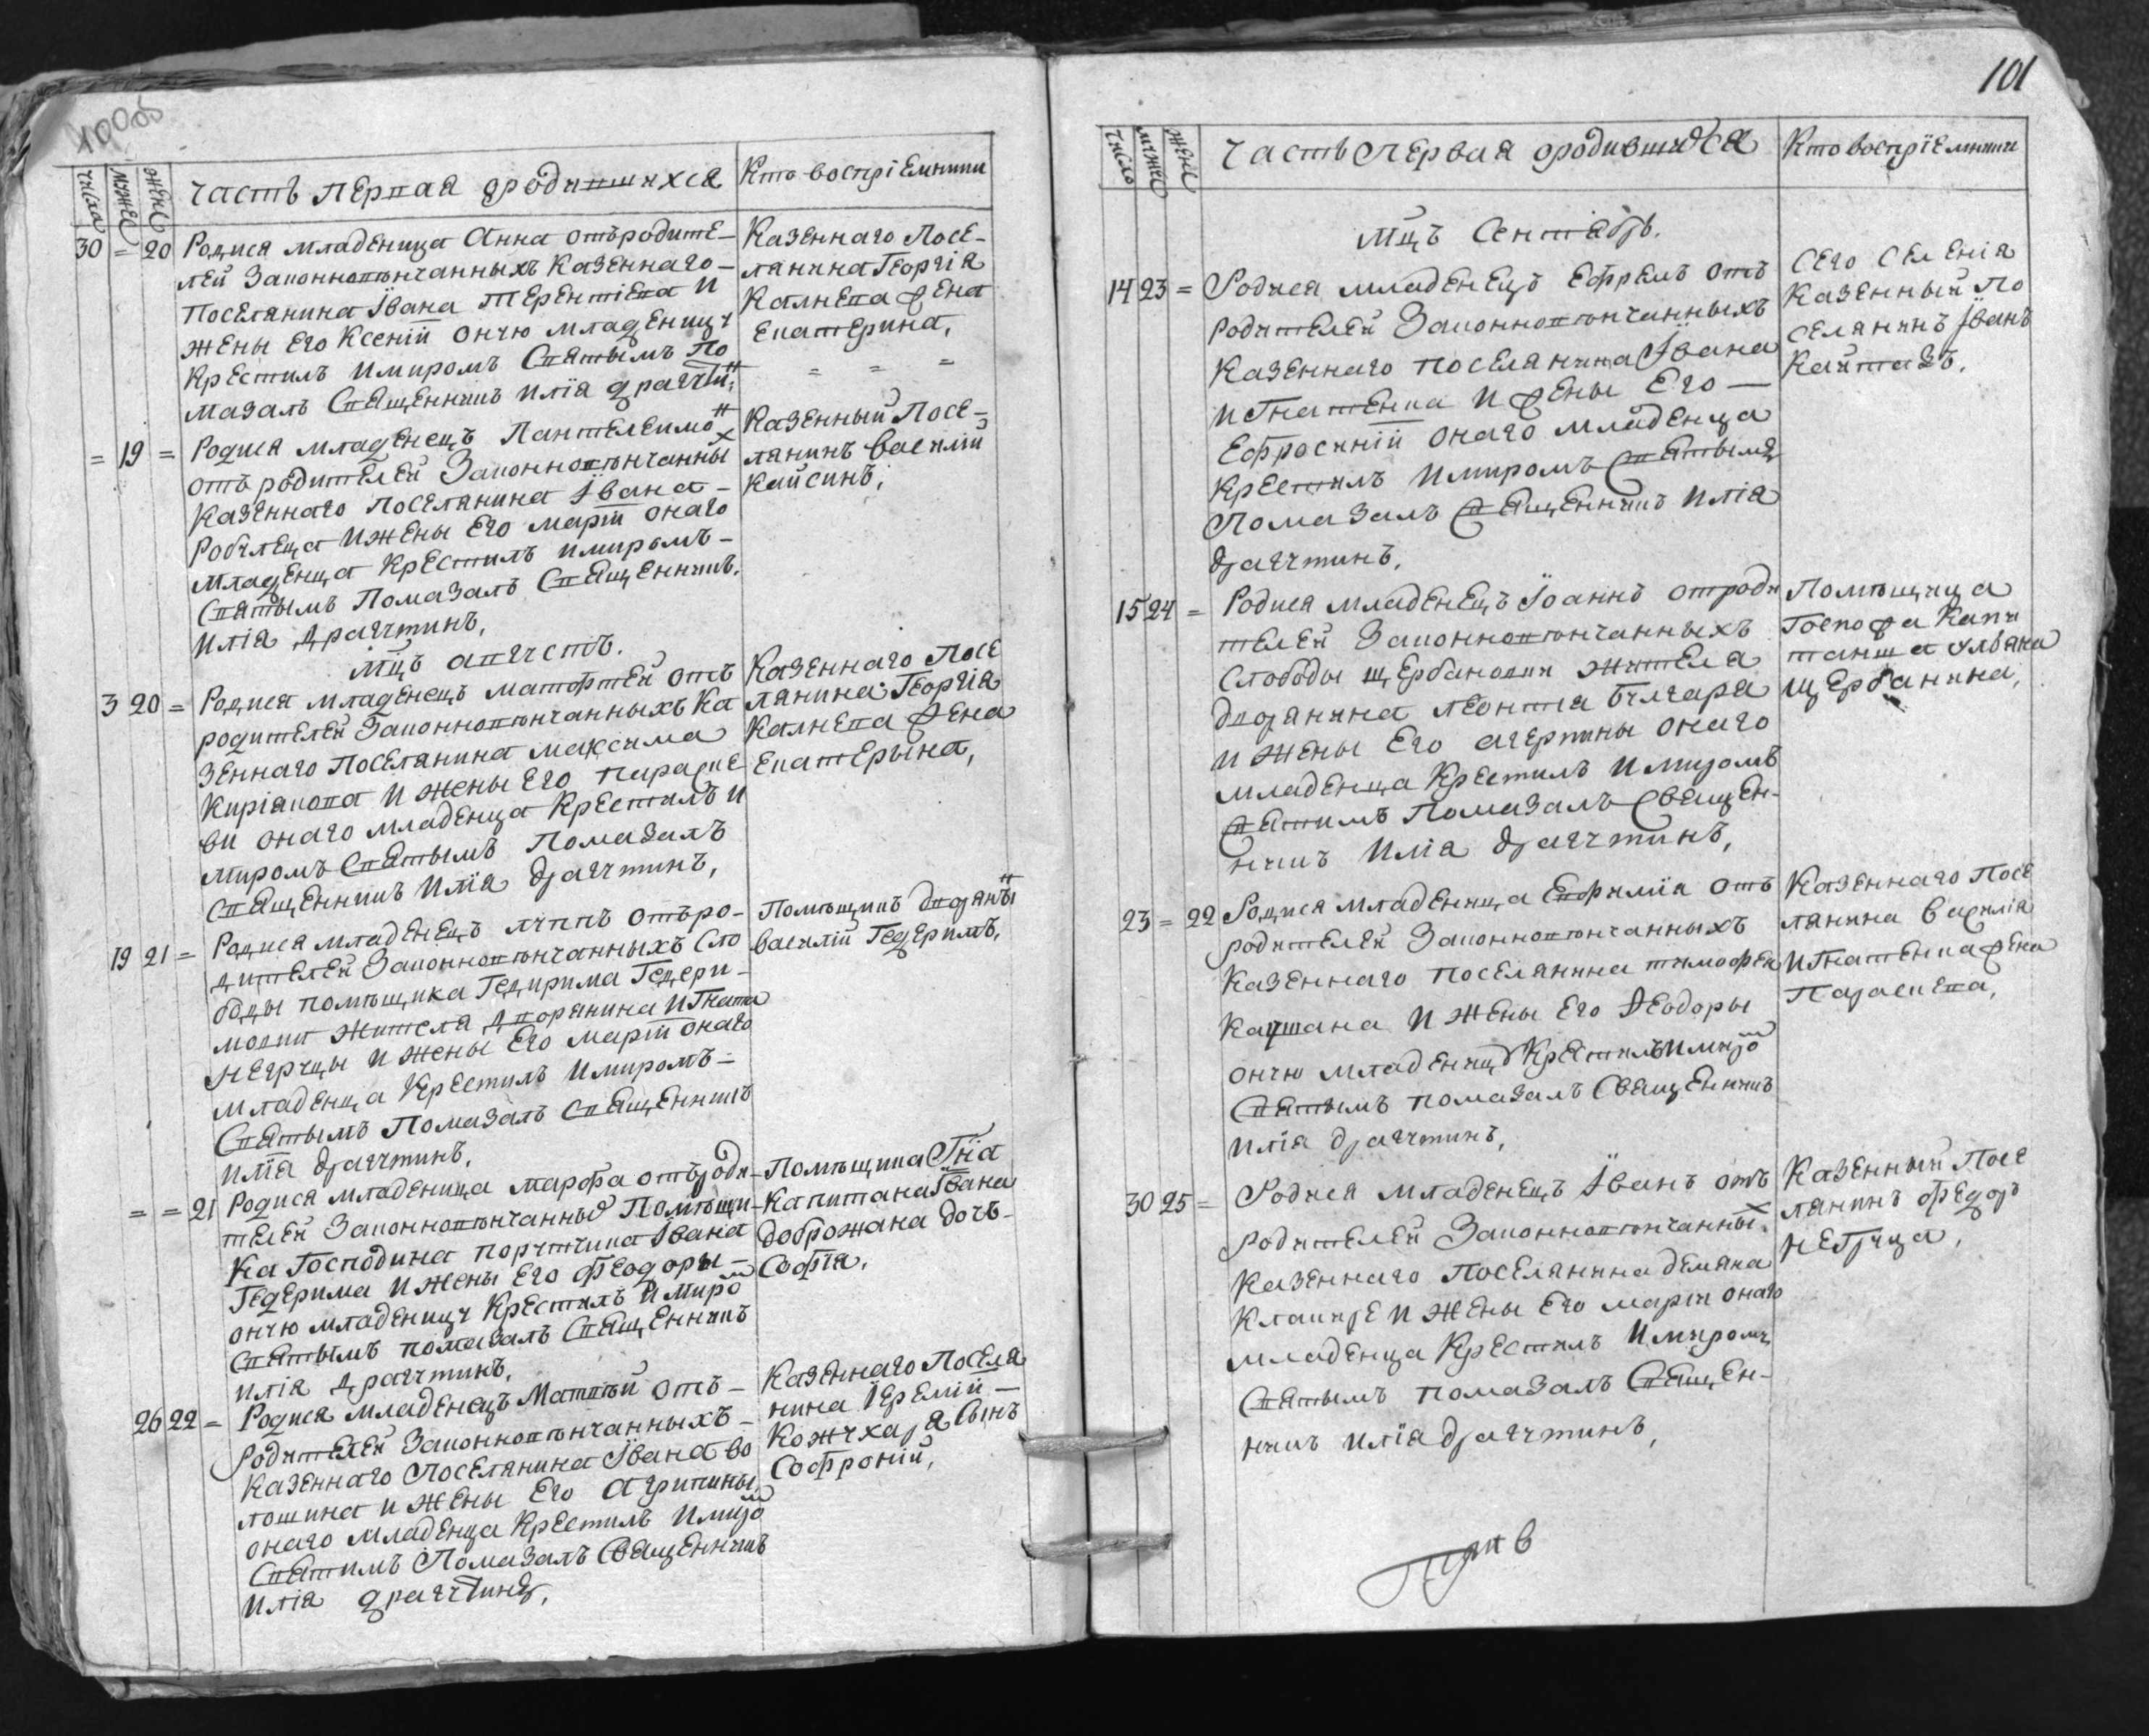 100об
числа
мужес
женс
Часть первая ородившихся
Кто воспріемники
30 = 20 Родися младеница Анна отъродите-
лей законновѣнчанныхъ казеннаго-
поселянина Івана Терентіева и
жены его Ксеній оную младеницу
крестилъ имиромъ святымъ по
мазалъ священникъ Илїя драгутинъ;
Казеннаго посе-
лянина Георгія
Калнева жена
Екатерина,
= = =
= 19 = Родися младенецъ Пантелеимон
отъ родителей законновѣнчанных
казеннаго поселянина Івана-
Робулеца ижены его маріи онаго
младенца крестилъ имиромъ-
святымъ помазалъ священникъ.
Илїа драгутинъ,
Казенный посе-
лянинъ василїй
Кайсинъ;
мцъ августъ.
3 20 = Родися младенецъ матфтей отъ
родителей законновѣнчанныхъ ка
зеннаго поселянина максима
Киріакова и жены его параске
ви онаго младенца крестилъ и
миромъ святымъ помазалъ
священникъ Илїя драгутинъ,
Казеннаго посе
лянина Георгія
Калнева жена
Екатерына,
19 21 = Родися младенецъ луппъ отъро-
дителей законновѣнчанныхъ сло
боды помѣщика Гедирима Гедери-
мовки жителя дворянина Игната
негруцы и жены его маріи онаго
младенца крестилъ имиромъ-
святымъ помазалъ священникъ
Илїа драгутинъ,
Помѣщикъ дворянын
василїй Гедеримъ,
= = 21 Родися младеница марфа отъроди-
телей законновѣнчанных помѣщи-
ка господина порутчика Івана
Гедерима ижены его феодоры-
оную младеницу крестилъ имиром
святымъ помазалъ священникъ
Илїя драгутинъ,
Помѣщика Гна
капитана Івана
доброжана дочь-
Софїя,
26 22 = Родися младенецъ Матвѣй отъ-
родителей законновѣнчанныхъ-
казеннаго поселянина Івана во
лошина и жены его агрипины,
онаго младенца крестилъ имиром
святимъ помазалъ священникъ
Илїя драгутинъ,
Казеннаго поселя
нина Іеремїй-
Кожухаря сынъ
Софронїй,
101
число
мужес
женс
Часть первая ородившихся
Кто воспрїемники
мцъ Сентябрь.
14 23 = Родися младенецъ Ефремъ отъ
родителей законновѣнчанныхъ
казеннаго поселянина Івана
Игнатенка и жены его-
Ефросинїй онаго младенца
крестилъ имиромъ святымъ
помазалъ священникъ Илїя
драгутинъ,
Сего селенїя
казенный по
селянинъ Іванъ
Кайтазъ,
15 24 = Родися младенецъ Іоаннъ отроди
телей законновѣнчанныхъ
слободы щербановки жителя
дворянина леонтия булгара
и жены его агерпины онаго
младенца крестилъ имиромъ
святимъ помазалъ священ-
никъ Илїа драгутинъ,
Помѣщица
госпожа капи
танша ульяна
щербанина,
23 = 22 Родися младеница Евфимїя отъ
родителей законновѣнчанныхъ
казеннаго поселянина тимофея
Каушана и жены его феодоры
оную младеницу крестилъ имиром
святымъ помазалъ священникъ
Илїя драгутинъ,
Казеннаго посе
лянина василїя
Игнатенка жена
Параскева,
30 25 = Родися младенецъ Іванъ отъ
родителей законновѣнчанных
казеннаго поселянина демяна
и жены его марїи онаго
младенца крестилъ имиромъ
святымъ помазалъ священ-
никъ Илїя драгутинъ,
Казенный посе
лянинъ федоръ
негруца,